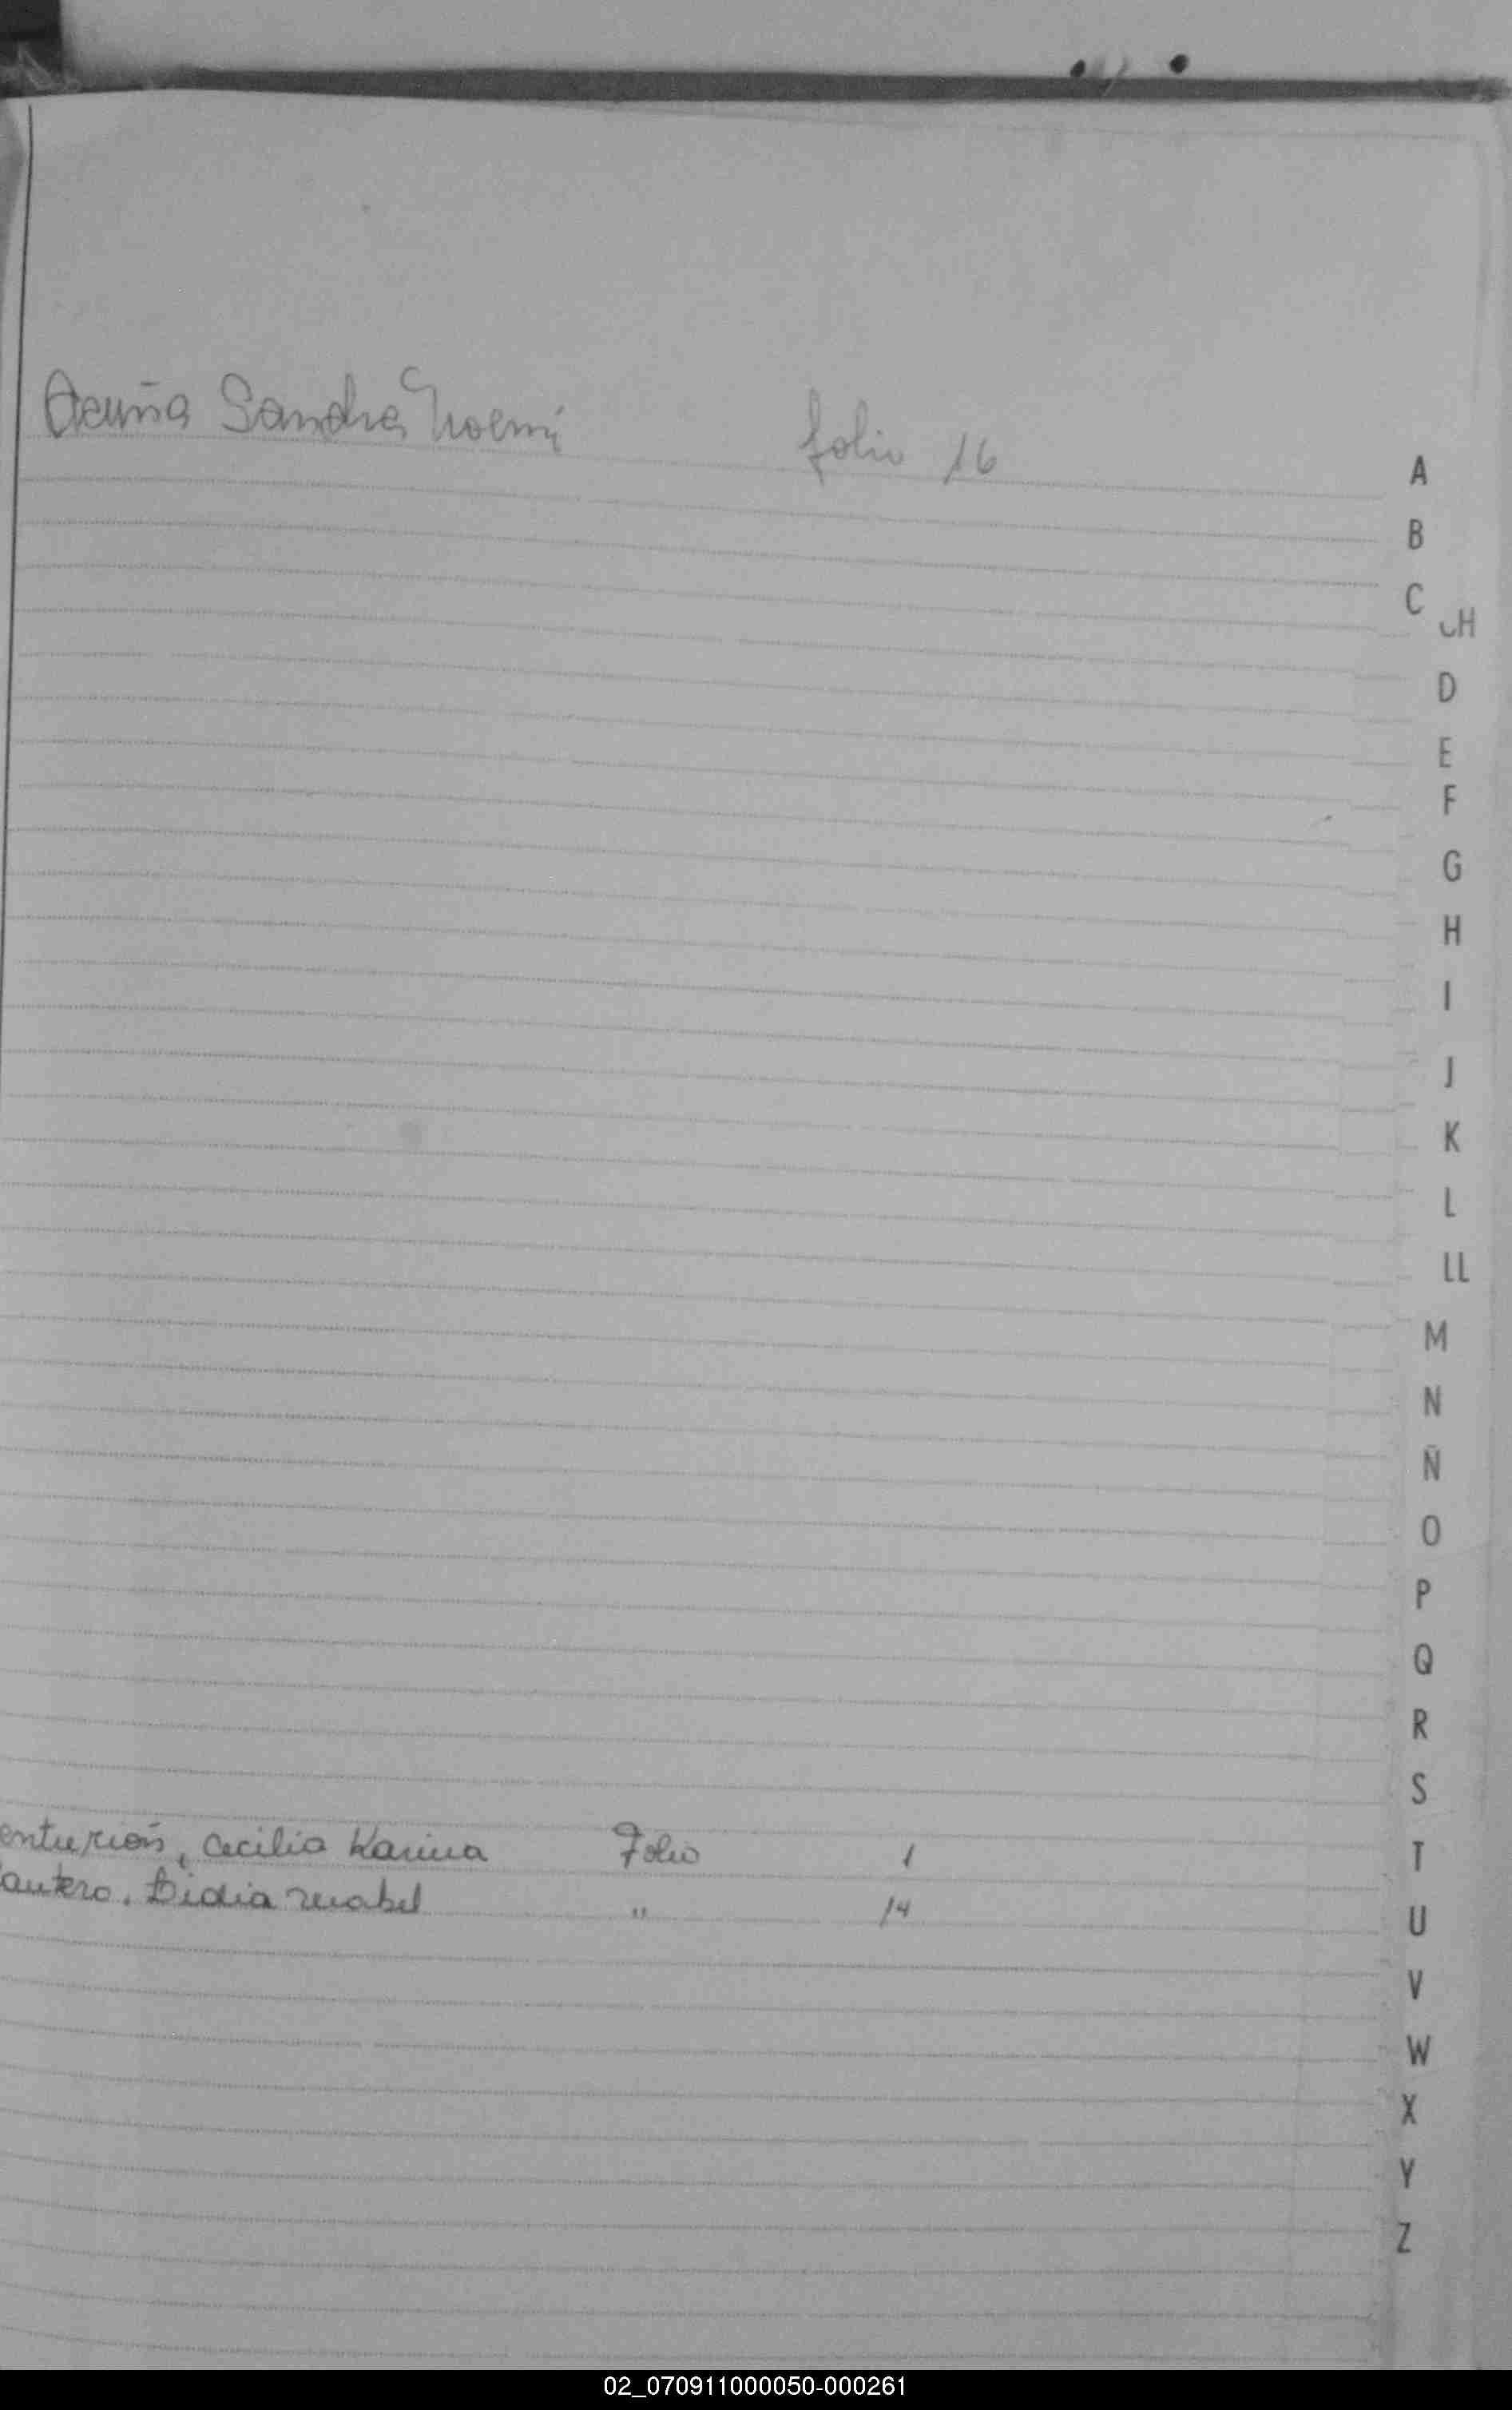 Acuña Sandra Noemi folio 16
A
B
C
CH
D
E
F
G
H
I
J
K
L
LL
M
N
Ñ
O
P
Q
R
S
enturión, Cecilia Karina Folio 1
T
antero, Lidia Mabel " 14
U
V
W
X
Y
Z
02_070911000050-000261